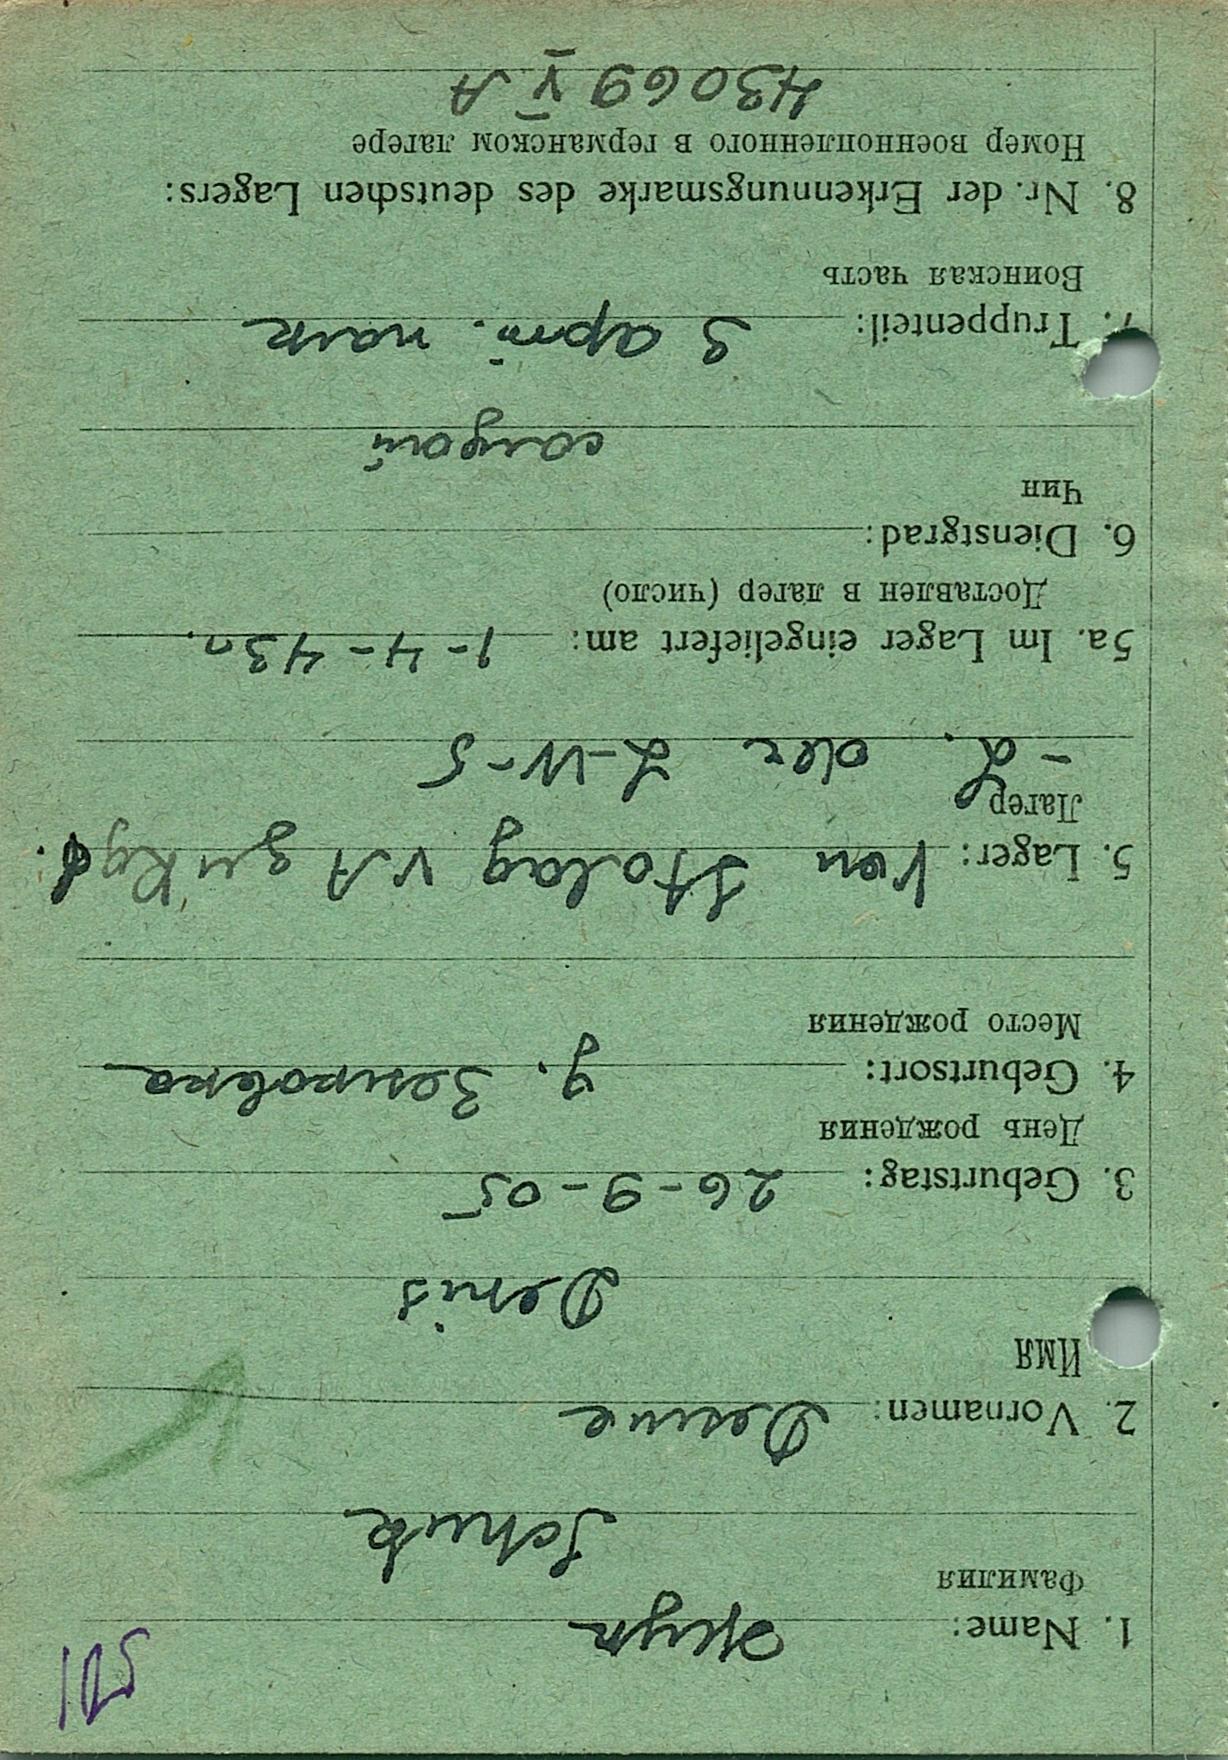 105
1. Name: Жук
Фамилия
Schuk
2. Vornamen: Денис
Имя
Denis
3. Geburtstag: 26-9-05
День рождения
4. Geburtsort: д.
Место рождения
5. Lager: Von Stalag VA zu Kgf.
Лагер
-L. der L-W-5
5a. Im Lager eingeliefert am: 1-4-43г.
Доставлен в лагер (число)
6. Dienstgrad:
Чин
солдат
7. Truppenteil: 3 арт. полк
Воинская часть
8. Nr. der Erkennungsmarke des deutschen Lagers:
Номер военнопленного в германском лагере
43069 V.A